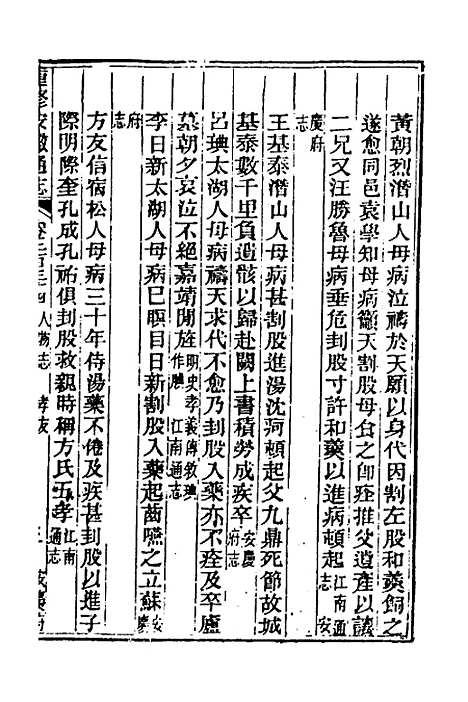 黃朝烈潛山人母病泣禱於天願以身代因割左股和羹飼之
遂愈同邑袁學知母病籲天割股母食之卽痊推父遺產以讓
二兄又汪勝魯母病垂危刲股寸許和羹以進病頓起江南通志 安
慶府志
王基泰潛山人母病甚割股進湯沈疴頓起父九鼎死節故城
基泰數千里負遺骸以歸赴闕上書積勞成疾卒安慶府志
呂㻞太湖人母病禱天求代不愈乃刲股入藥亦不痊及卒廬
墓朝夕哀泣不絕嘉靖閒旌明史孝義傳敘 作 江南通志
李日新太湖人母病已瞑目日新割股入藥起齒嚥之立蘇安慶
府志
方友信宿松人母病三十年侍湯藥不倦及疾甚刲股以進子
際明際奎孔成孔祐俱刲股救親時稱方氏五孝江南通志
重修安徽通志 人物志 孝友